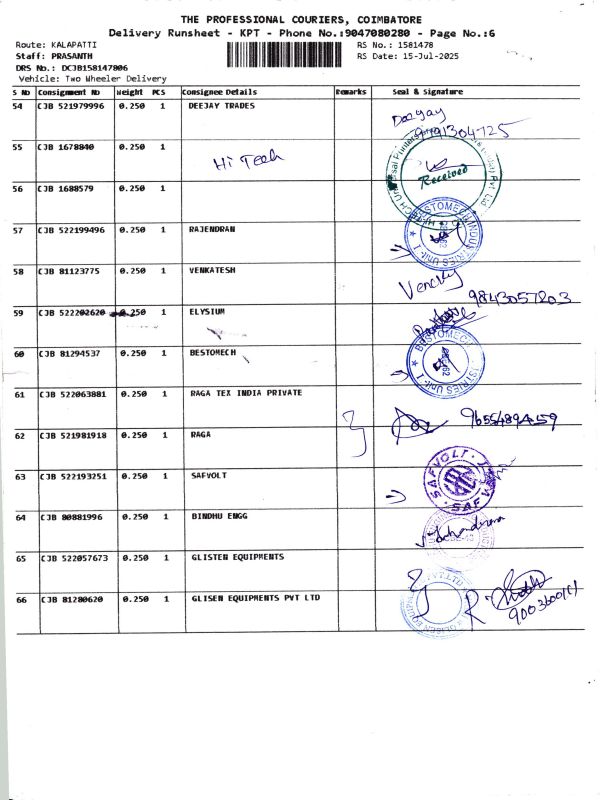 THE PROFESSIONAL COURIERS, COIMBATORE
Delivery Runsheet - KPT - Phone No.:9047080280 - Page No.:6
Route: KALAPATTI
RS No.: 1581478
Staff: PRASANTH
RS Date: 15-Jul-2025
DRS No.: DCJB158147806
Vehicle: Two Wheeler Delivery
S No Consignment No Weight PCS Consignee Details Remarks Seal & Signature
54 CJB 521979996 0.250 1 DEEJAY TRADES
Deejay
9791304725
55 CJB 1678840 0.250 1 Hi Tech
Received
56 CJB 1688579 0.250 1
57 CJB 522199496 0.250 1 RAJENDRAN
BESTOMECH INDUSTRIES Unit-1
58 CJB 81123775 0.250 1 VENKATESH
Vencky
9843057203
59 CJB 522202620 0.250 1 ELYSIUM
60 CJB 81294537 0.250 1 BESTOMECH
BESTOMECH INDUSTRIES Unit-1
61 CJB 522063881 0.250 1 RAGA TEX INDIA PRIVATE
9655489459
62 CJB 521981918 0.250 1 RAGA
63 CJB 522193251 0.250 1 SAFVOLT
SAFVOLT
SAF
64 CJB 80881996 0.250 1 BINDHU ENGG
65 CJB 522057673 0.250 1 GLISTEN EQUIPMENTS
66 CJB 81280620 0.250 1 GLISEN EQUIPMENTS PVT LTD